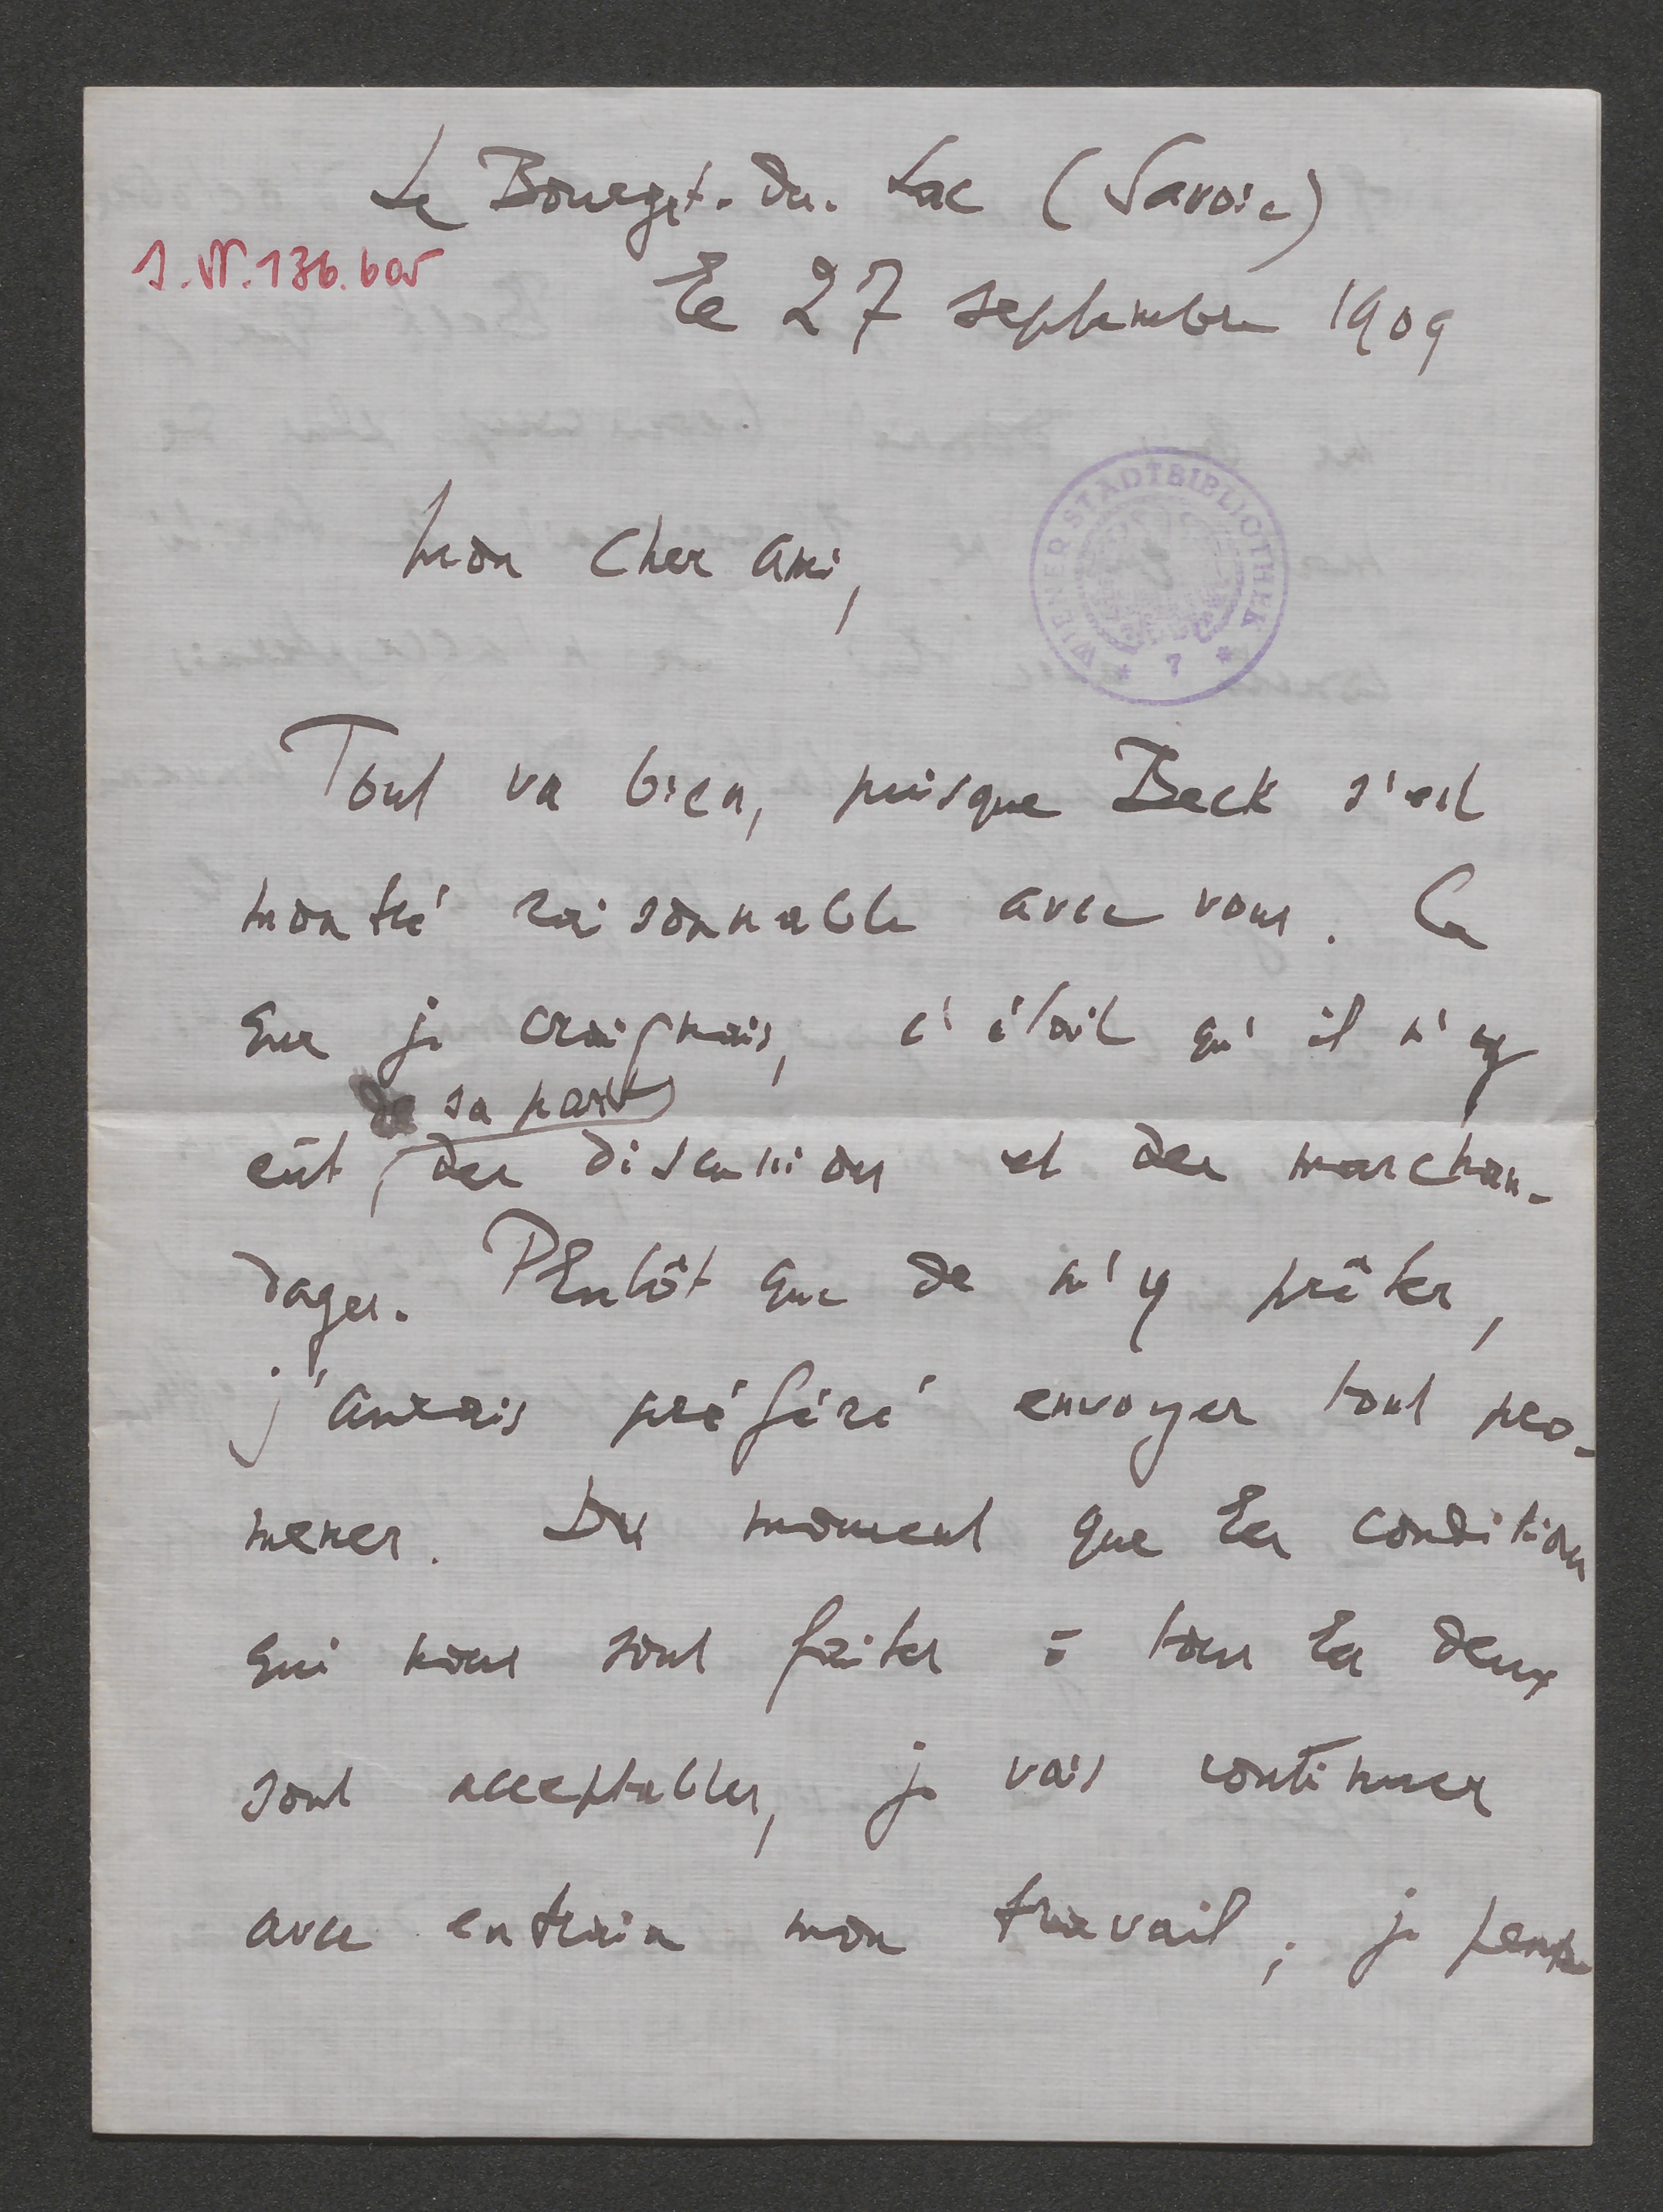 Le Bourget-du-Lac (Savoie)
I.N.136.605
le 27 septembre 1909
WIENER STADTBIBLIOTHEK
* 7 *
Mon cher ami,
Tout va bien, puisque Beck s'est
montré raisonnable avec vous. Ce
que je craignais, c'était qu'il n'y
de sa part
eût des discussions et des marchan-
dages. Plutôt que de m'y prêter,
j'aurais préféré envoyer tout pro-
mener. Du moment que les conditions
qui nous sont faites à tous les deux
sont acceptables, je vais continuer
avec entrain mon travail ; je pense